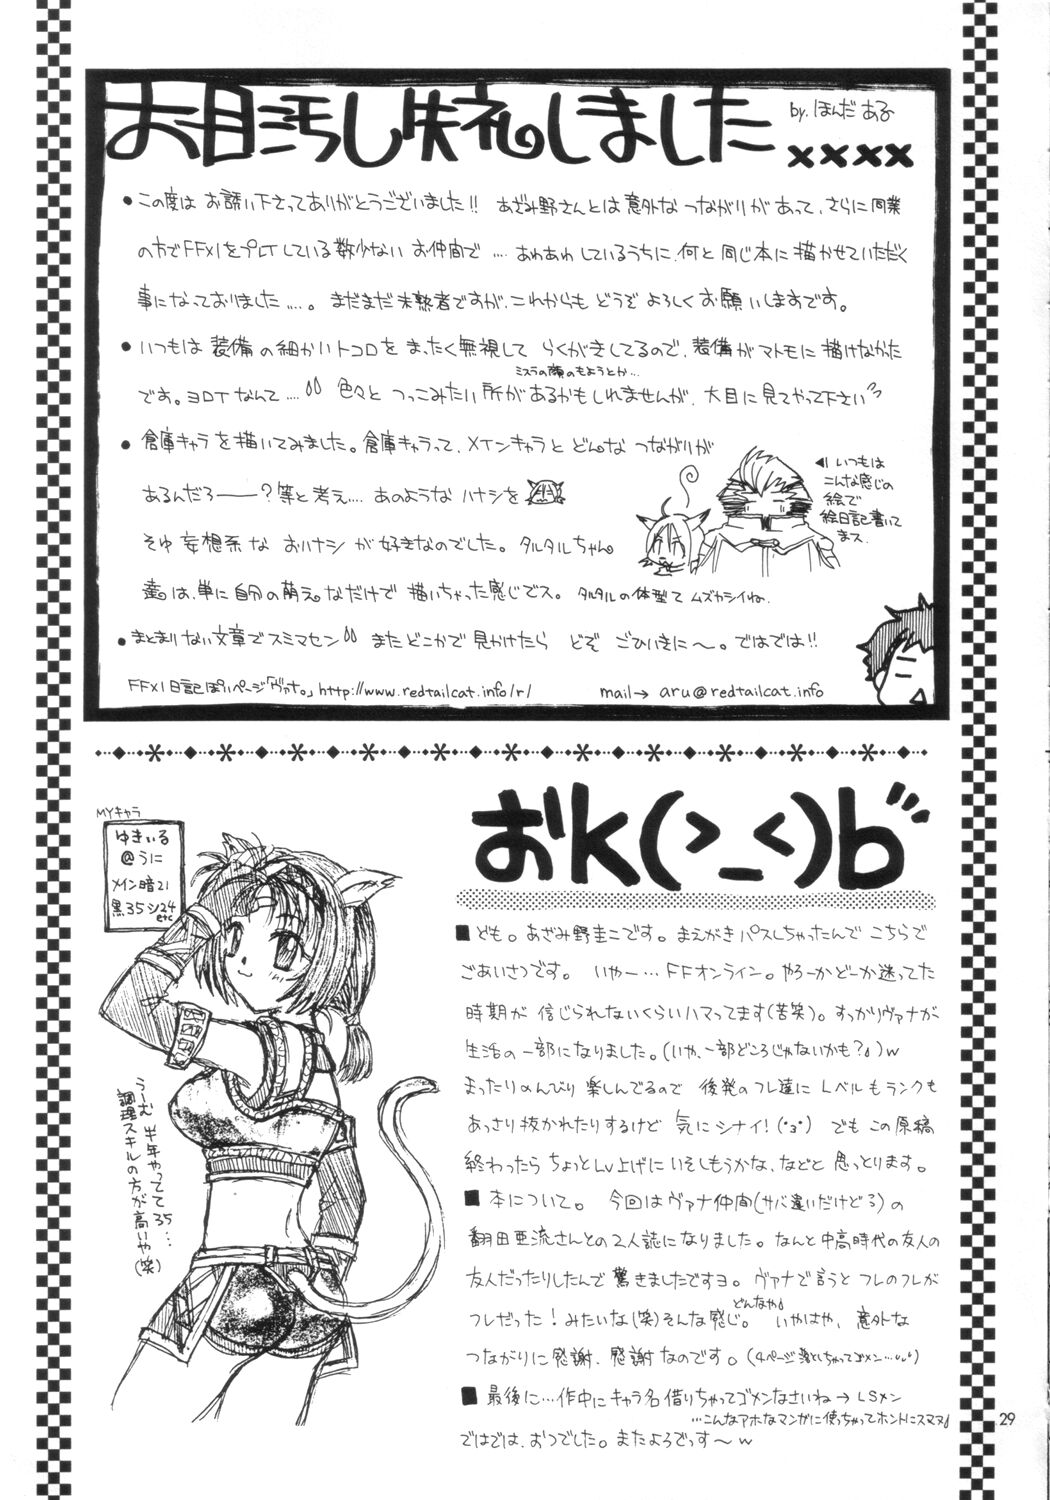 お目汚し失礼しました
by.ほんだ ある
××××
●この度は お誘い下さってありがとうございました!! あざみ野さんとは意外な つながりがあって、さらに同業
の方でFFXIをプレイしている数少ない お仲間で‥‥ あわあわしているうちに、何と同じ本に描かせていただく
事になっておりました‥‥。 まだまだ未熟者ですが、これからも どうぞ よろしく お願いしますです。
●いつもは 装備の細かいトコロを まったく無視して らくがきしてるので、装備がマトモに描けなかた
ミスラの顔のもようとか…
です。ヨロイなんて‥‥ 色々と つっこみたい所があるかもしれませんが、大目に見てやって下さい
●倉庫キャラを描いてみました。倉庫キャラって、メインキャラと どんな つながりが
あるんだろ――?等と考え‥‥ あのような ハナシを
そゆ 妄想系な おハナシ が好きなのでした。タルタルちゃん
達は、単に自分の萌え。なだけで 描いちゃった感じでス。 タルタルの体型て ムズカシイね。
◀いつもは
こんな感じの
絵で
絵日記書いて
まス.
●まとまりない文章でスミマセン またどこかで見かけたら どぞ ごひいきに～。ではでは!!
FFXI日記ぽいページ「ヴァナ。」http://www.redtailcat.info/r/ mail→ aru@redtailcat.info
おk(>_<)b
MYキャラ
ゆきいる
@うに
メイン暗21
黒35シ24
etc
うーむ 半年やってて35…
調理スキルの方が高いや(笑)
■ども。あざみ野圭二です。まえがきパスしちゃったんで こちらで
ごあいさつです。 いやー…FFオンライン。やろーかどーか迷ってた
時期が 信じられないくらいハマってます(苦笑)。すっかりヴァナが
生活の一部になりました。(いや、一部どころじゃないかも?♪)w
まったりのんびり 楽しんでるので 後発のフレ達に レベルもランクも
あっさり抜かれたりするけど 気にシナイ!(°3°) でも この原稿
終わったら ちょっとLv上げに いそしもうかな、などと 思っとります。
■本について。 今回はヴァナ仲間(サバ違いだけどろ)の
翻田亜流さんとの2人誌になりました。なんと中高時代の友人の
友人だったりしたんで 驚きましたですヨ。ヴァナで言うと フレのフレが
どんなや♪
フレだった!みたいな(笑)そんな感じ。 いやはや、意外な
つながりに感謝、感謝なのです。(4ページ落としちゃってゴメン…)
■最後に…作中にキャラ名借りちゃってゴメンなさいね→LSメン
…こんなアホなマンガに使っちゃってホントにスマヌ♪
ではでは、おつでした。またよろでっす～w
29